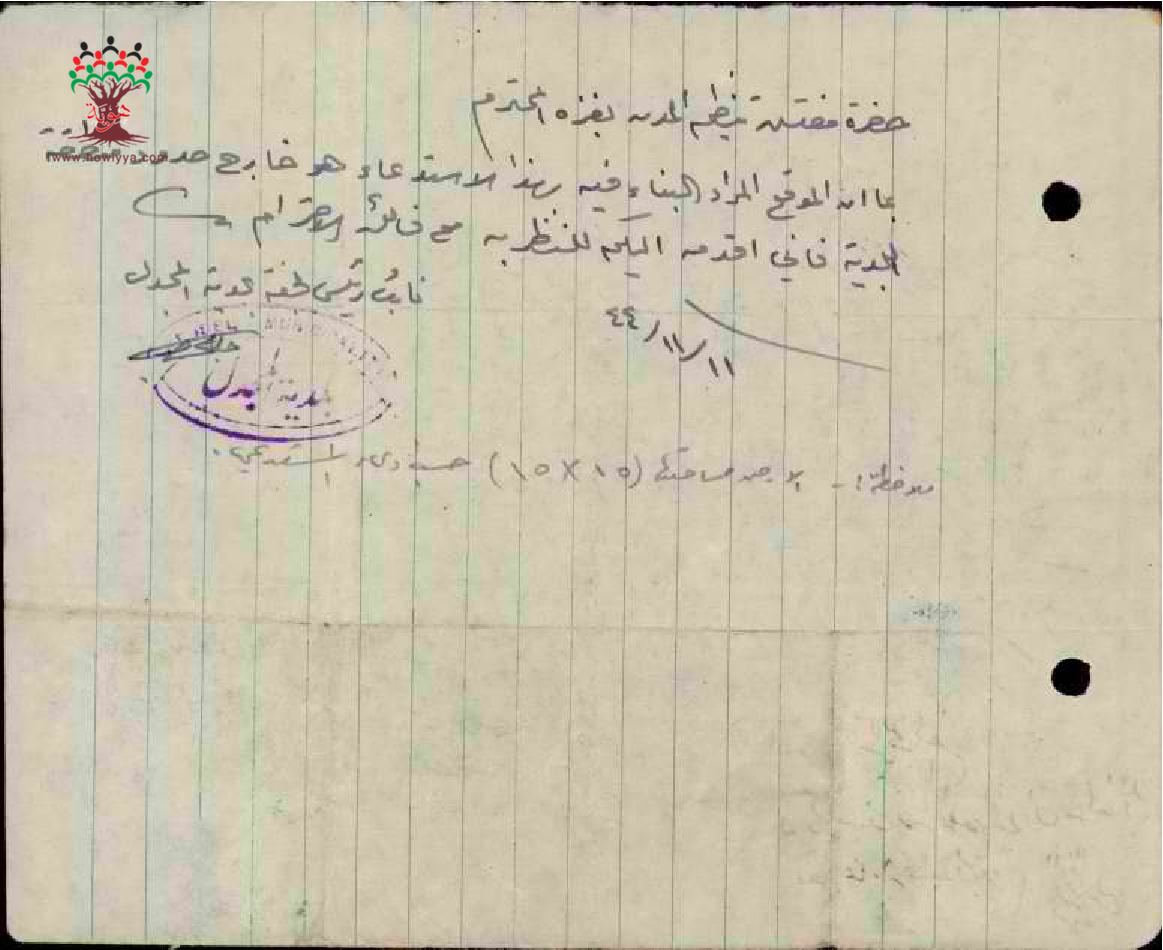 هوية
www.howiyya.com
حضرة مفتش تنظيم المدن بغزه المحترم
بما ان الموقع المراد البناء فيه بهذا الاستدعاء هو خارج حدود منطقة
البلدية فاني اقدمه اليكم للنظر به مع فائق الاحترام
نائب رئيس لجنة بلدية المجدل
١١/١١/٤٤
MUNICIPAL
بلدية المجدل
ملاحظة :- مساحتها (١٥ X ١٥) حسب المستدعي.